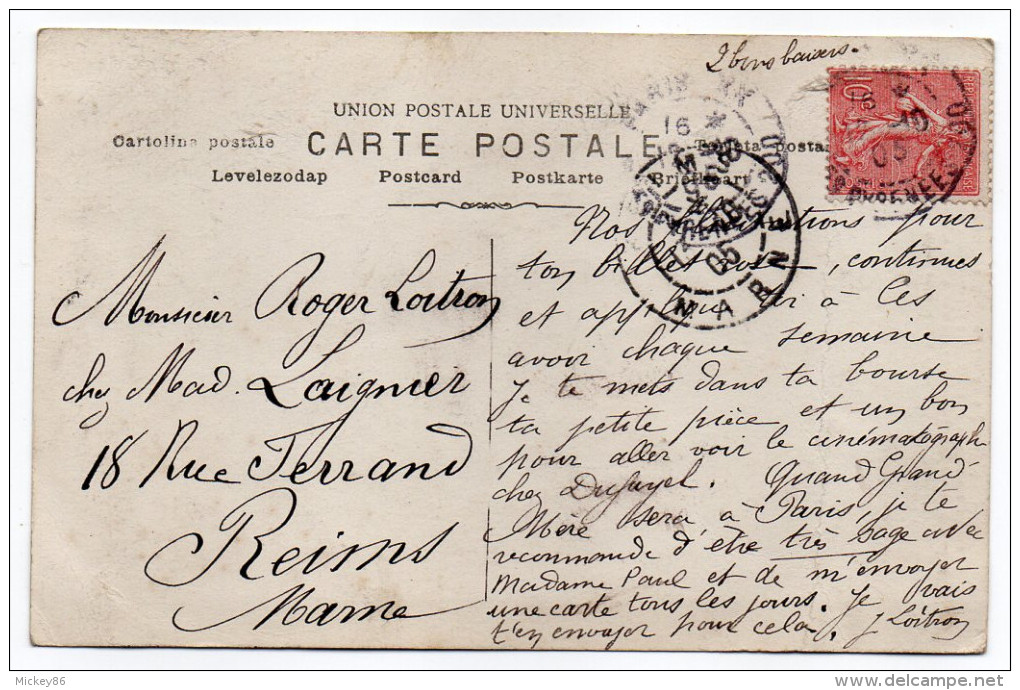 2 bons baisers.
UNION POSTALE UNIVERSELLE
CARTE POSTALE
Cartolina postale
Levelezodap Postcard Postkarte
10c
REPUB
16
10
05
05
MARNE
Monsieur Roger Loitron
chez Mad. Laignier
18 Rue Ferrand
Reims
Marne
Nos félicitations pour
ton billet rose, continues
et applique toi à les
avoir chaque semaine
Je te mets dans ta bourse
ta petite pièce et un bon
pour aller voir le cinématograph
chez Dufayel. Quand Grand
Mère sera à Paris, je te
recommande d'être très sage avec
Madame Paul et de m'envoyer
une carte tous les jours. Je vais
t'en envoyer pour cela. J Loitron
Mickey86
delcampe.net